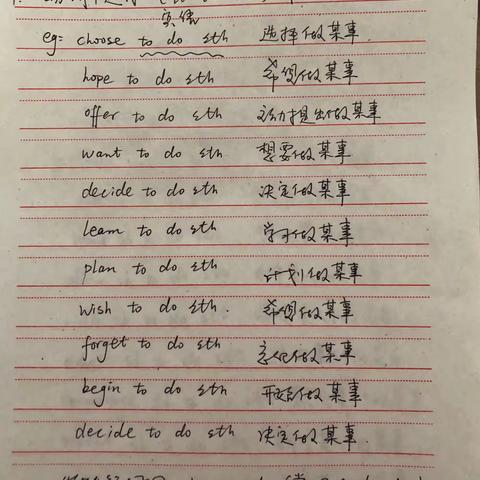 宾语
eg: choose to do sth 选择做某事.
hope to do sth 希望做某事
offer to do sth 主动提出做某事
want to do sth 想要做某事
decide to do sth 决定做某事
learn to do sth 学习做某事
plan to do sth 计划做某事
wish to do sth. 希望做某事
forget to do sth 忘记做某事
begin to do sth 开始做某事
decide to do sth 决定做某事.